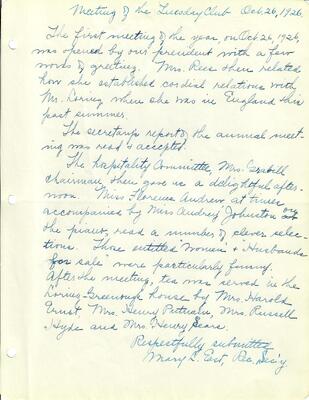 Meeting of the Tuesday Club Oct. 26, 1926.
The first meeting of the year, on Oct 26, 1926,
was opened by our president with a few
words of greeting. Mrs. Rice then related
how she established cordial relations with
Mr. Loring when she was in England this
past summer.
The secretary's report of the annual meet-
ing was read & accepted.
The hospitality Committee, Mrs.
chairman then gave us a delightful after-
noon. Miss Florence Andrew at times
accompanied by Mrs Audrey Johnston on
the piano, read a number of clever selec-
tions. Those entitled Women & "Husbands
for sale" were particularly funny.
After the meeting, tea was served in the
Loring-Greenough house by Mrs. Harold
Ernst, Mrs. Henry Putnam, Mrs. Russell
Hyde and Mrs. Henry Sears.
Respectfully submitted
Mary L. East, Rec. Sec'y